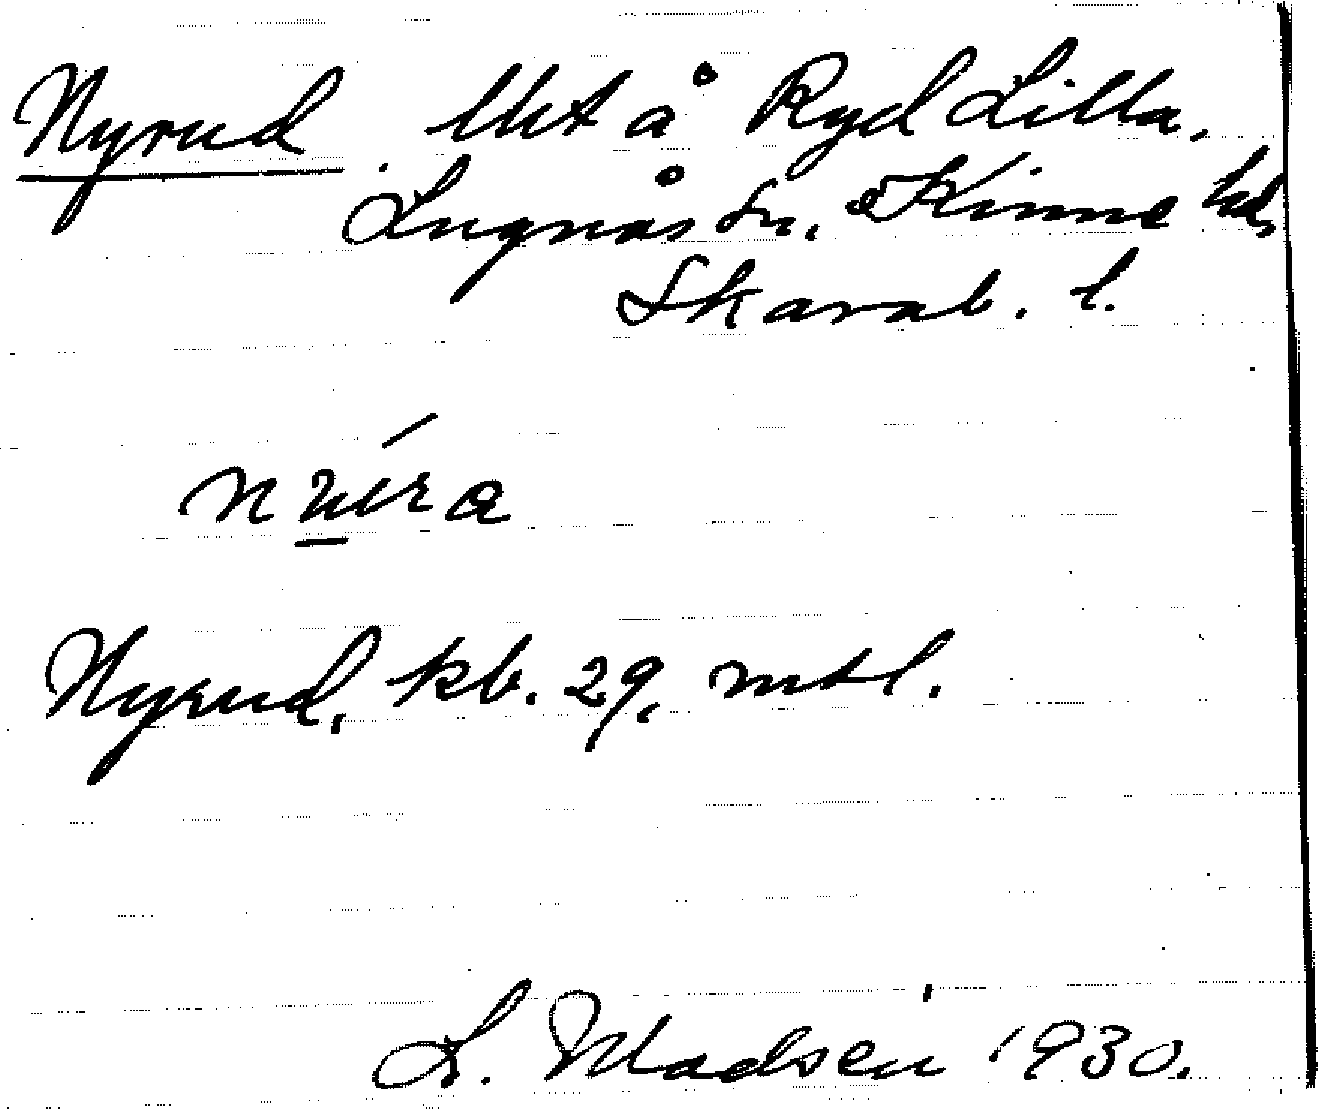 Nyrud Ukt å Ryd Lilla,
Lugnås sn, Kinne hd,
Skarab. l.
Nyrud, kb. 29, mtl.
L. Madsen 1930.